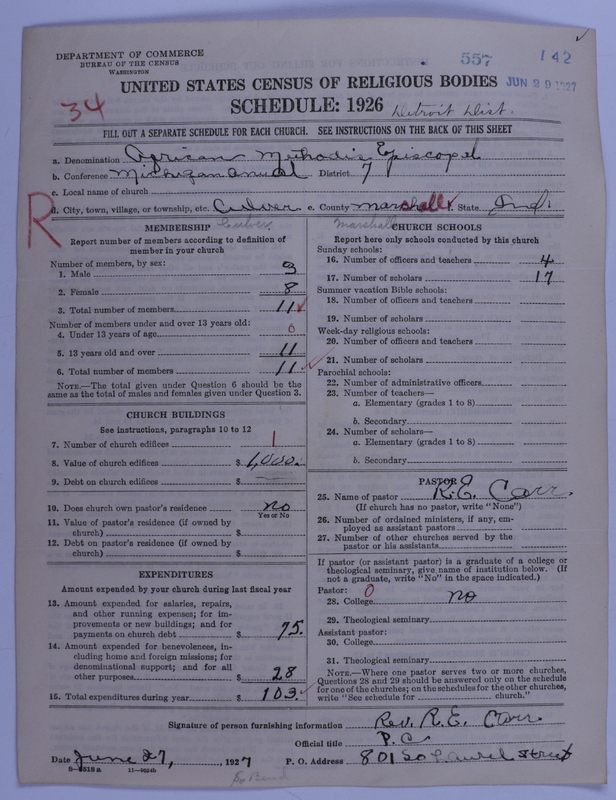 DEPARTMENT OF COMMERCE
BUREAU OF THE CENSUS
WASHINGTON
557 142
JUN 29 1927
UNITED STATES CENSUS OF RELIGIOUS BODIES
34 SCHEDULE: 1926 Detroit Dist.
FILL OUT A SEPARATE SCHEDULE FOR EACH CHURCH. SEE INSTRUCTIONS ON THE BACK OF THIS SHEET
a. Denomination African Methodis Episcopal
b. Conference Michigan annual District 7
c. Local name of church
R
d. City, town, village, or township, etc. Culver e. County Marshall f. State Ind.
Culver Marshall
MEMBERSHIP
Report number of members according to definition of member in your church
Number of members, by sex:
1. Male 3
2. Female 8
3. Total number of members 11
Number of members under and over 13 years old:
4. Under 13 years of age 0
5. 13 years old and over 11
6. Total number of members 11
NOTE.—The total given under Question 6 should be the same as the total of males and females given under Question 3.
CHURCH BUILDINGS
See instructions, paragraphs 10 to 12
7. Number of church edifices 1
8. Value of church edifices $ 1,000.
9. Debt on church edifices $
10. Does church own pastor's residence no
Yes or No
11. Value of pastor's residence (if owned by church) $
12. Debt on pastor's residence (if owned by church) $
EXPENDITURES
Amount expended by your church during last fiscal year
13. Amount expended for salaries, repairs, and other running expenses; for improvements or new buildings; and for payments on church debt $ 75.
14. Amount expended for benevolences, including home and foreign missions; for denominational support; and for all other purposes $ 28
15. Total expenditures during year $ 103.
CHURCH SCHOOLS
Report here only schools conducted by this church
Sunday schools:
16. Number of officers and teachers 4
17. Number of scholars 17
Summer vacation Bible schools:
18. Number of officers and teachers
19. Number of scholars
Week-day religious schools:
20. Number of officers and teachers
21. Number of scholars
Parochial schools:
22. Number of administrative officers
23. Number of teachers—
a. Elementary (grades 1 to 8)
b. Secondary
24. Number of scholars—
a. Elementary (grades 1 to 8)
b. Secondary
PASTOR
25. Name of pastor R.E. Carr.
(If church has no pastor, write "None")
26. Number of ordained ministers, if any, employed as assistant pastors
27. Number of other churches served by the pastor or his assistants
If pastor (or assistant pastor) is a graduate of a college or theological seminary, give name of institution below. (If not a graduate, write "No" in the space indicated.)
Pastor: 0
28. College no
29. Theological seminary
Assistant pastor:
30. College
31. Theological seminary
NOTE.—Where one pastor serves two or more churches, Questions 28 and 29 should be answered only on the schedule for one of the churches; on the schedules for the other churches, write "See schedule for church."
Signature of person furnishing information Rev. R.E. Carr.
Official title P.C.
Date June 27, 1927 P. O. Address 801 So Laurel Street
11—9024b
So Bend